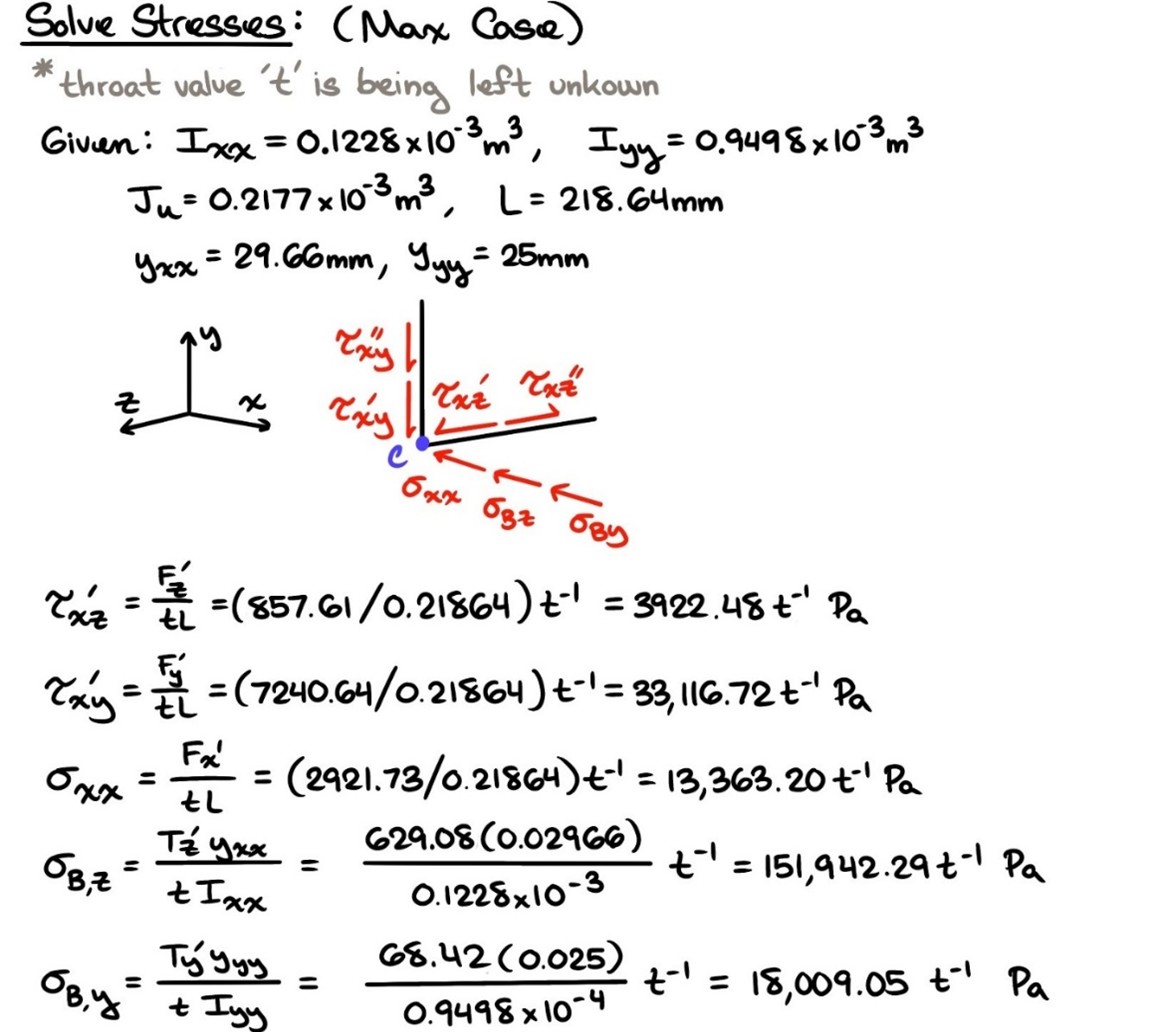 Solve Stresses: (Max Case)
*throat value 't' is being left unkown
Given: Ixx = 0.1228×10⁻³m³, Iyy = 0.9498×10⁻³m³
Ju = 0.2177×10⁻³m³, L = 218.64mm
yxx = 29.66mm, yyy = 25mm
y
z x
τxy''
τxy'
τxz' τxz''
C
σxx σBz σBy
τxz' = Fz'/tL = (857.61/0.21864) t⁻¹ = 3922.48 t⁻¹ Pa
τxy' = Fy'/tL = (7240.64/0.21864) t⁻¹ = 33,116.72 t⁻¹ Pa
σxx = Fx'/tL = (2921.73/0.21864) t⁻¹ = 13,363.20 t⁻¹ Pa
σB,z = Tz' yxx/t Ixx = 629.08(0.02966)/0.1228×10⁻³ t⁻¹ = 151,942.29 t⁻¹ Pa
σB,y = Ty' yyy/t Iyy = 68.42(0.025)/0.9498×10⁻⁴ t⁻¹ = 18,009.05 t⁻¹ Pa